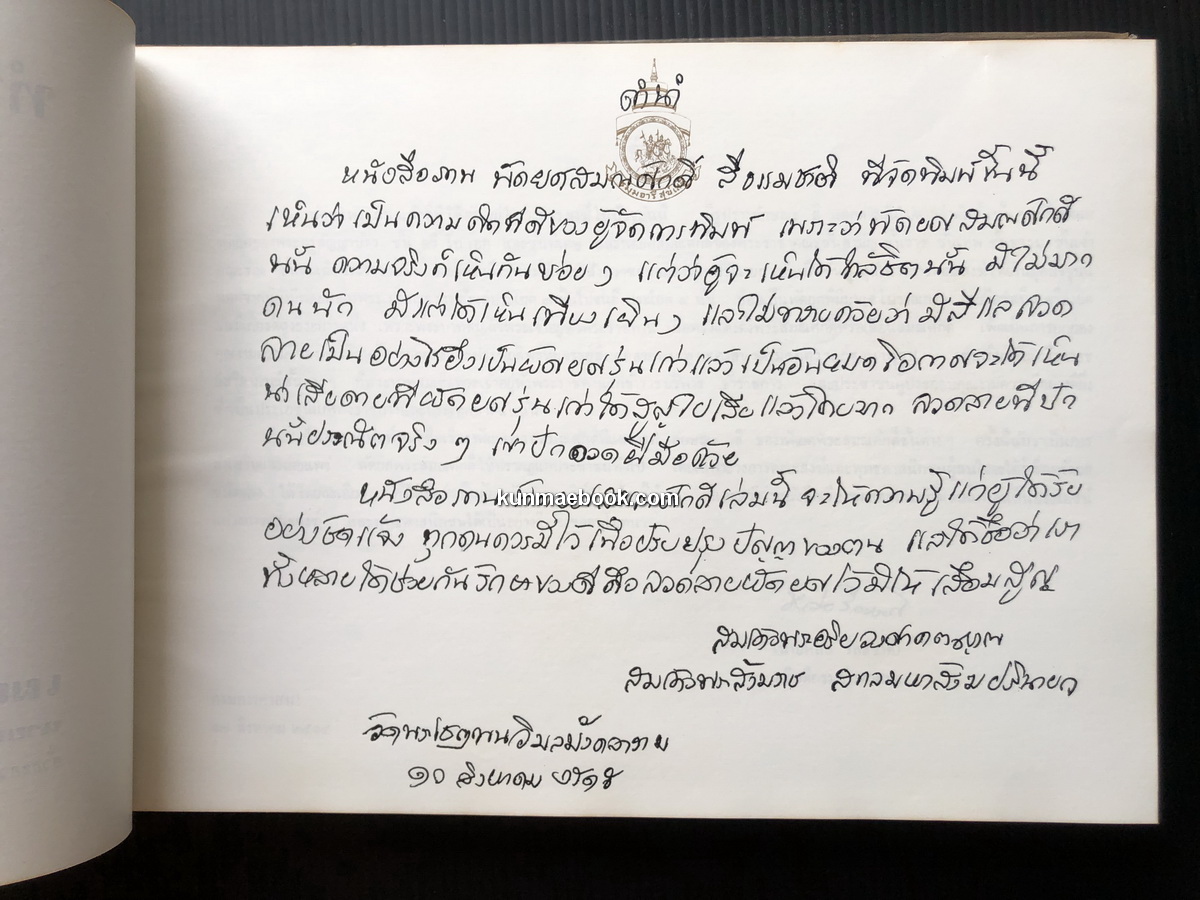 คำนำ
หนังสือภาพ พัดยศสมณศักดิ์ สีธรรมชาติ ที่จัดพิมพ์ขึ้นนี้
เห็นว่าเป็นความคิดที่ดีของผู้จัดการพิมพ์ เพราะว่าพัดยศสมณศักดิ์
นั้น ความจริงก็เห็นกันบ่อยๆ แต่ว่าผู้จะเห็นได้ใกล้ชิดนั้น มีไม่มาก
คนนัก มักแต่ได้เห็นเพียงเผินๆ และไม่ทราบด้วยว่า มีสีและลวด
ลายเป็นอย่างไร ยิ่งเป็นพัดยศรุ่นเก่าแล้วเป็นอันหมดโอกาสจะได้เห็น
น่าเสียดายที่พัดยศรุ่นเก่าได้สูญไปเสียแล้วโดยมาก ลวดลายที่ปัก
นั้นประณีตจริงๆ เขาปักอวดฝีมือด้วย
หนังสือภาพพัดยศสมณศักดิ์เล่มนี้ จะให้ความรู้แก่ผู้ได้รับ
อย่างชัดแจ้ง ทุกคนควรมีไว้เพื่อปรับปรุงปัญญาของตน และได้ชื่อว่าเรา
ทั้งหลายได้ช่วยกันรักษาของดีคือลวดลายพัดยศไว้มิให้เสื่อมสูญ
สมเด็จพระอริยวงศาคตญาณ
สมเด็จพระสังฆราช สกลมหาสังฆปริณายก
วัดพระเชตุพนวิมลมังคลาราม
๑๐ สิงหาคม
kunmaebook.com